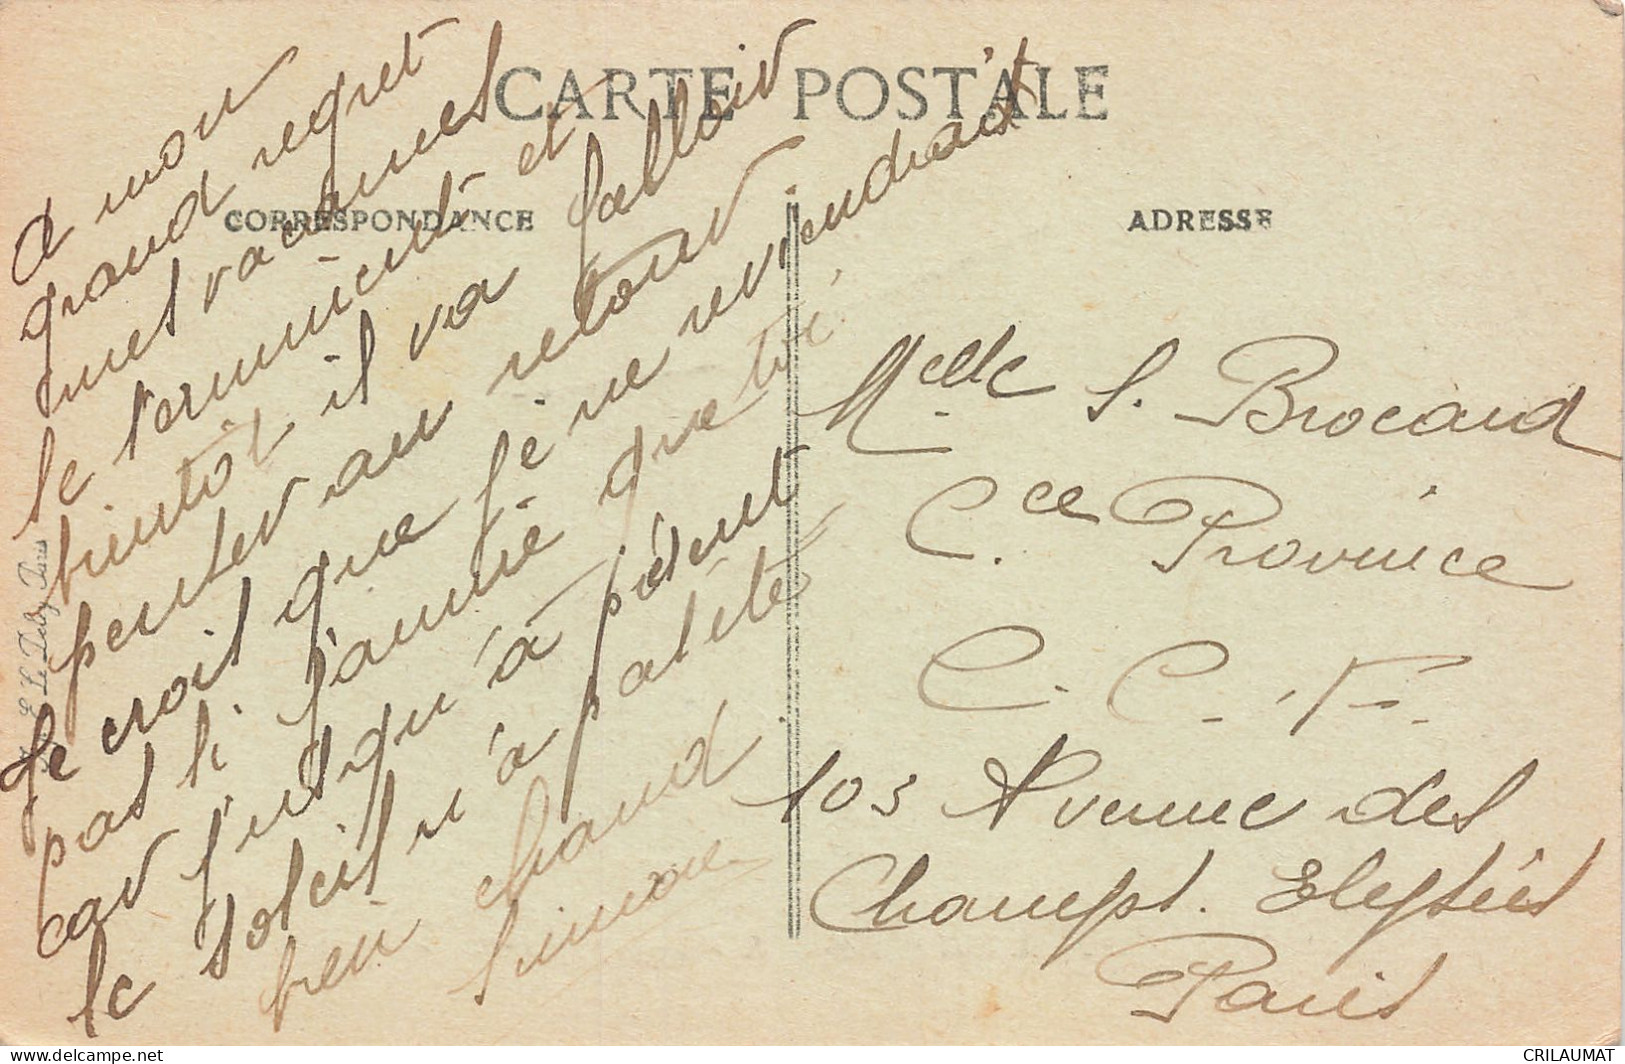 CARTE POSTALE
CORRESPONDANCE
ADRESSE
A mon
grand regret
mes vacances
se terminent et
bientot il va falloir
penser au retour
Je crois que je ne reviendrait
pas si j'aunie que toi
car jusqu'à présent
le soleil n'a pas été
bien chaud
Simone
Melle S. Brocard
Cce Province
C. C. F.
103 Avenue des
Champs. Elysées
Paris
E. Le Deley, Paris
CRILAUMAT